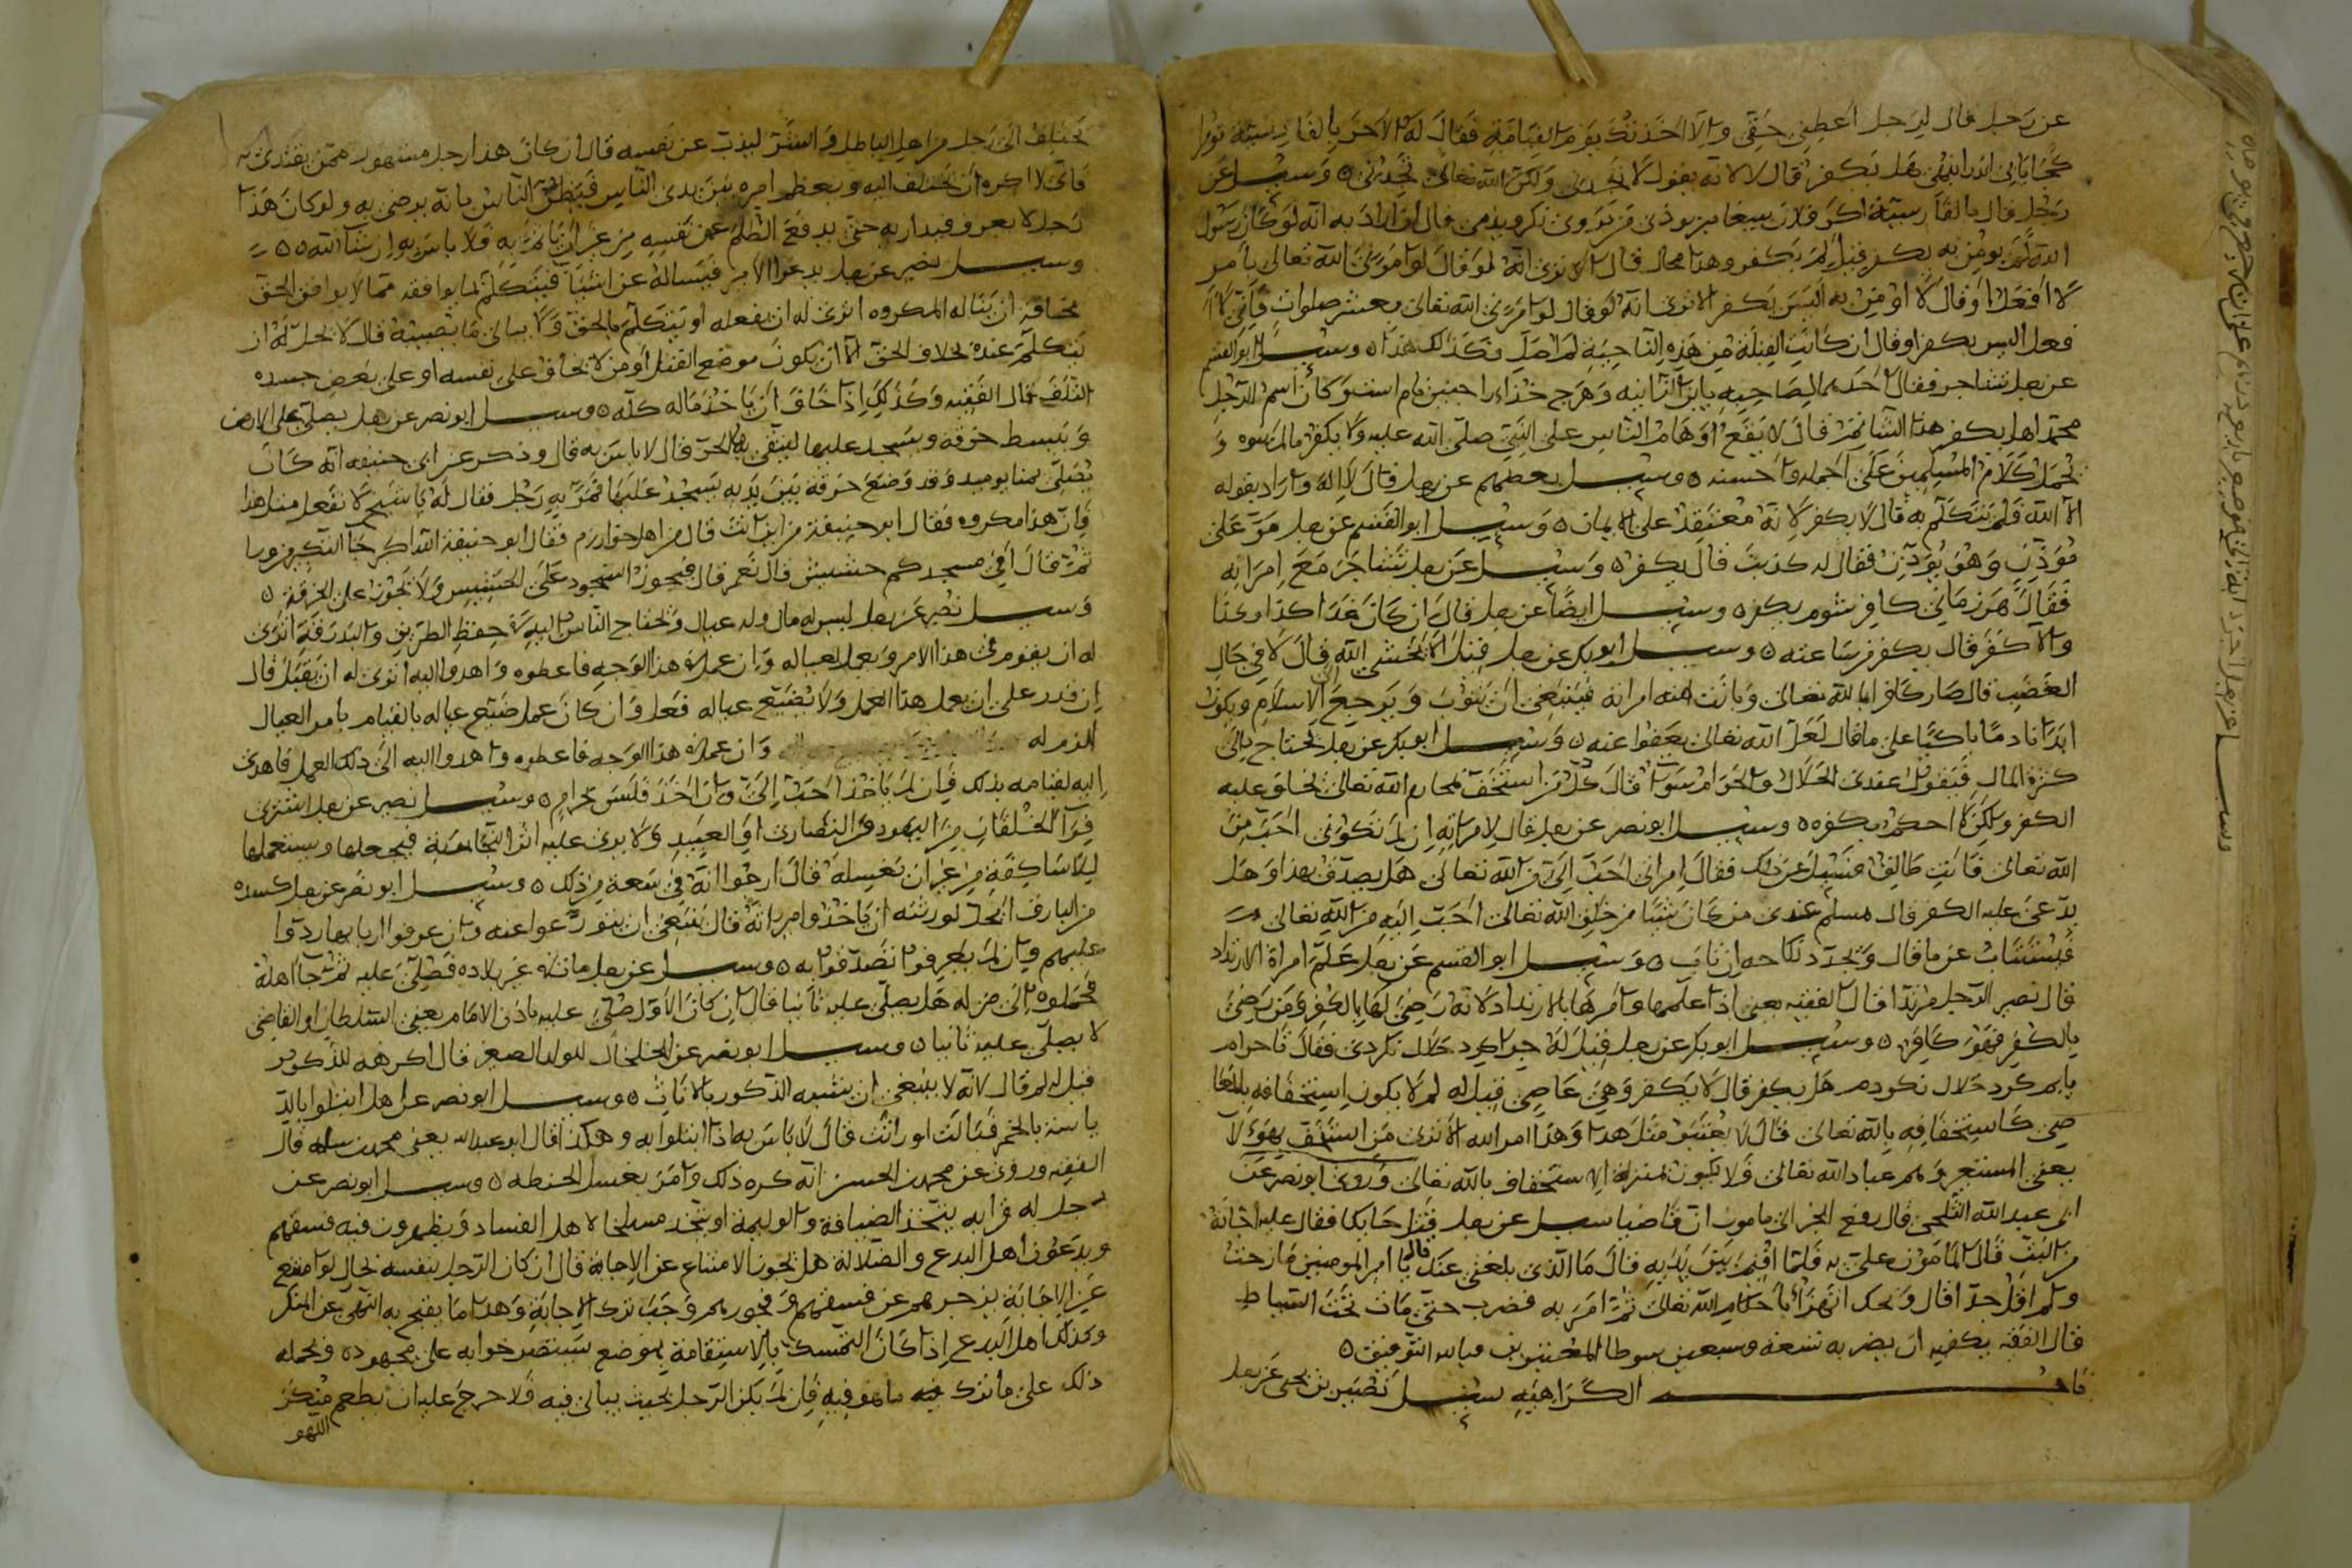 عن رجل قال لرجل أعطني حقي وإلا أخذتك يوم القيامة فقال له الآخر بالفارسية
هل يكفر قال لا لأنه يقول لا تجدني ولكن الله تعالى تجدني ٥ وسئل عن
رجل قال بالفارسية اكر فلان بيغامبر بودي من بدوي نكرويدمي قال ان اراد به انه لو كان رسول
الله لم يومن به يكفر قيل لم يكفر وهذا محال قال الا ترى انه لو قال لو امرني الله تعالى بامر
لا افعل او قال لا اومن به اليس يكفر الا ترى انه لو قال لو امرني الله تعالى بعشر صلوات فاني لا
افعل اليس يكفر او قال ان كانت القبلة من هذه الناحية لم اصل فكذلك هذا ٥ وسئل ابو القسم
عن رجل تشاجر فقال احدهما لصاحبه يا بن الزانية وهرج خذاء را جنين نام است وكان اسم الرجل
محمدا هل يكفر هذا الشاتم قال لا يقع اوهام الناس على النبي صلى الله عليه ولا يكفر ما لم ينوه و
يحمل كلام المسلمين على اجمله واحسنه ٥ وسئل بعضهم عن رجل قال لا اله واراد بقوله
الا الله فلم يتكلم به قال لا يكفر لانه معتقد على الايمان ٥ وسئل ابو القسم عن رجل مر على
مؤذن وهو يؤذن فقال له كذبت قال يكفر ٥ وسئل عن رجل تشاجر مع امرانه
فقال هر زماني كافر شوم يكفر ٥ وسئل ايضا عن رجل قال ان كان غدا كذا وكذا
والا كفر قال يكفر من ساعته ٥ وسئل ابو بكر عن رجل قيل الا تخشى الله قال لا في حال
الغضب قال صار كافرا بالله تعالى وبانت منه امراته فينبغي ان يتوب ويرجع الى الاسلام ويكون
ابدا نادما باكيا على ما قال لعل الله تعالى يعفوا عنه ٥ وسئل ابو بكر عن رجل يحتاج الى
كثرة المال فيقول عندي الحلال والحرام سوآ قال كل من استخف محارم الله تعالى يخاف عليه
الكفر ولكن لا احكم بكفره ٥ وسئل ابو نصر عن رجل قال لامراته ان لم تكوني احب من
الله تعالى فانت طالق فسئل عن ذلك فقال امراتي احب الي من الله تعالى هل يصدق بهذا وهل
يدعى عليه الكفر قال مسلم عندي من كان شيئا من خلق الله تعالى احب اليه من الله تعالى
فيستتاب عن ما قال ويجدد نكاحه ان تاب ٥ وسئل ابو القسم عن رجل علم امراة الارتداد
قال نصير الرجل مرتدا قال الفقيه يعني اذا علمها وامرها بالارتداد لانه رضي لها بالكفر ومن رضي
بالكفر فهو كافر ٥ وسئل ابو بكر عن رجل قيل له جرا كرد حلال نكردي فقال تا حرام
يابم كرد حلال نكردم هل يكفر قال لا يكفر وهي عاصي قيل له لم لا يكون استخفافه بالمعا
صي كاستخفافه بالله تعالى قال لا يعتبر مثل هذا وهذا امر الله الا ترى من استخف بهؤلا
يعني المستعير وهم عباد الله تعالى فلا يكون بمنزلة الاستخفاف بالله تعالى وروى ابو نصر عن
ابي عبد الله الثلجي قال رفع الخبر الى مامون ان قاضيا سئل عن رجل قتل حايكا فقال عليه
قال المامون علي به فلما اقيم بين يديه قال ما الذي بلغني عنك قال يا امير المومنين مازحت
ولم اقل جدا قال ويحك اتهزأ باحكام الله تعالى ثم امر به فضرب حتى مات تحت السياط
قال الفقيه يكفيه ان يضربه تسعة وسبعين سوطا وبالله التوفيق ٥
باب الكراهية سئل نصير بن يحيى عن رجل
يختلف الى رجل من اهل الباطل والشر ليذب عن نفسه قال ان كان هذا رجل مشهور ممن يقتدى به
فاني لا اكره ان يختلف اليه ويعظم امره بين يدي الناس فيظن الناس بانه يرضى به ولو كان هذا
رجل لا يعرف فيداريه حتى يدفع الظلم عن نفسه من غير ان ياثم به فلا باس به ان شآ الله ٥٥
وسئل نصير عن رجل يدعوا الامير فيساله عن اشيآ فيتكلم بما يوافقه مما لا يوافق الحق
مخافة ان يناله المكروه اترى له ان يفعله او يتكلم بالحق ولا يبالي ما يصيبه قال لا يحل له ان
يتكلم عنده بخلاف الحق الا ان يكون موضع القتل او من لا يخاف على نفسه او على بعض جسده
التلف قال الفقيه وكذلك اذا خاف ان ياخذ ماله كله ٥ وسئل ابو نصر عن رجل يصلي على الارض
ويبسط خرقة ويسجد عليها ليتقي بها الحر قال لا باس به قال وذكر عن ابي حنيفة انه كان
يصلي بمنا يوميد وقد وضع خرقة بين يديه يسجد عليها فمر به رجل فقال له يا شيخ لا تفعل مثل هذا
فان هذا مكروه فقال ابو حنيفة من اين انت قال من اهل خوارزم فقال ابو حنيفة الله اكبر جآ التكبير من ورا
ثم قال افي مسجدكم حشيش قال نعم قال فيجوز السجود على الحشيش ولا يجوز على الخرقة ٥
وسئل نصير عن رجل ليس له مال وله عيال ويحتاج الناس اليه في حفظ الطريق والبدرقة اترى
له ان يقوم في هذا الامر ويعمل لعياله وان عمل في هذا الوجه فاعطوه واهدوا اليه اترى له ان يقبل قال
ان قدر على ان يعمل هذا العمل ولا يضيع عياله فعل وان كان عمل ضيع عياله بالقيام بامر العيال
الزم له وان عمل في هذا الوجه فاعطوه واهدوا اليه الى ذلك العمل فاهدى
اليه لقيامه بذلك فان لم ياخذ احب الي وان اخذ فليس بحرام ٥ وسئل نصير عن رجل اشترى
من اليهود والنصارى او العبيد ولا يرى عليه اثر النجاسة فيجعلها ويستعملها
للاساكفة من غير ان يغسله قال ارجوا انه في سعة من ذلك ٥ وسئل ابو نصر عن رجل كسبه
من ايحل لورثته ان ياخذوا ميراثه قال ينبغي ان يتورعوا عنه وان عرفوا اربابها ردوا
عليهم وان لم يعرفوا تصدقوا به ٥ وسئل عن رجل مات في غير بلاده فصلى عليه ثم جآ اهله
فحملوه الى منزله هل يصلى عليه ثانيا قال ان كان الاول صلي عليه باذن الامام يعني السلطان او القاضي
لا يصلى عليه ثانيا ٥ وسئل ابو نصر عن الخلخال للولد الصغير قال اكرهه للذكور
قيل له لم قال لانه لا ينبغي ان يتشبه الذكور بالاناث ٥ وسئل ابو نصر عن
فبالت او راثت قال لا باس به اذا ابتلوا به وهكذا قال ابو عبد الله يعني محمد بن سلمه قال
الفقيه وروى عن محمد بن الحسن انه كره ذلك وامر بغسل الحنطه ٥ وسئل ابو نصر عن
رجل له قرابة يتخذ الضيافة والوليمة او يتخذ مجلسا لاهل الفساد ويظهرون فيه فسقهم
ويدعون اهل البدع والضلالة هل يجوز الامتناع عن الاجابة قال ان كان الرجل بنفسه بحال لو امتنع
عن الاجابة يزجرهم عن فسقهم وفجورهم وجب ترك الاجابة وهذا ما يقع به النهي عن المنكر
وكذلك اهل البدع اذا كان التمسك بالاستقامة بموضع
ذلك على ما ترك ما هو فيه فان لم يكن الرجل بحيث يبالى فيه فلا حرج عليه ان يطعم
اللهو